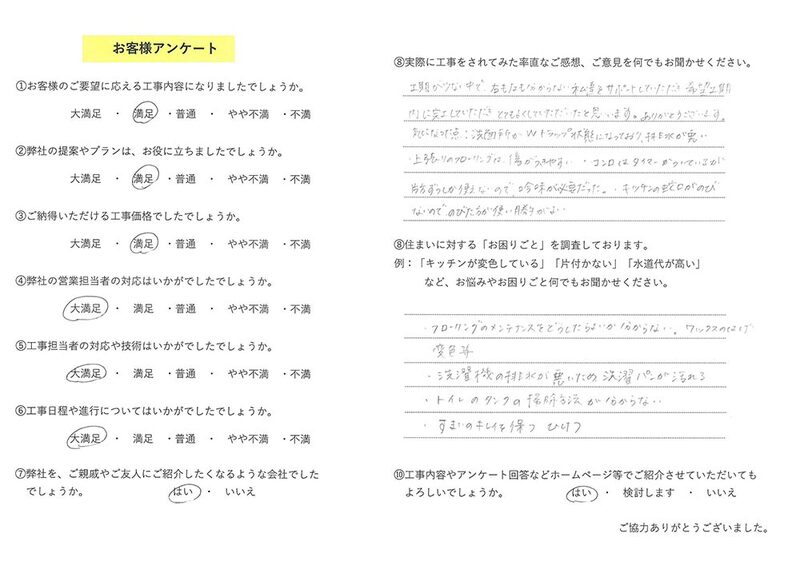 お客様アンケート
①お客様のご要望に応える工事内容になりましたでしょうか。
大満足 ・ 満足 ・普通 ・ やや不満 ・不満
②弊社の提案やプランは、お役に立ちましたでしょうか。
大満足 ・ 満足 ・普通 ・ やや不満 ・不満
③ご納得いただける工事価格でしたでしょうか。
大満足 ・ 満足 ・普通 ・ やや不満 ・不満
④弊社の営業担当者の対応はいかがでしたでしょうか。
大満足 ・ 満足 ・普通 ・ やや不満 ・不満
⑤工事担当者の対応や技術はいかがでしたでしょうか。
大満足 ・ 満足 ・普通 ・ やや不満 ・不満
⑥工事日程や進行についてはいかがでしたでしょうか。
大満足 ・ 満足 ・普通 ・ やや不満 ・不満
⑦弊社を、ご親戚やご友人にご紹介したくなるような会社でした
でしょうか。 はい ・ いいえ
⑧実際に工事をされてみた率直なご感想、ご意見を何でもお聞かせください。
工期が少ない中で、右も左も分からない私達をサポートしていただき 希望工期
内に完工していただき とてもよくしていただいたと思います。ありがとうございます。
気になった点：洗面所がWトラップ状態になっており、排水が悪い
・上張りのフローリングは傷がつきやすい ・コンロはタイマーがついているが
片方ずつしか使えないので、吟味が必要だった。・キッチンの蛇口がのび
ないので のびた方が使い勝手がよい
⑧住まいに対する「お困りごと」を調査しております。
例：「キッチンが変色している」「片付かない」「水道代が高い」
など、お悩みやお困りごと何でもお聞かせください。
・フローリングのメンテナンスをどうしたらよいか分からない。ワックスのはげ
変色等
・洗濯機の排水が悪いため 洗濯パンが溢れる
・トイレのタンクの掃除方法が分からない
・すまいのキレイを保つ ひけつ
⑩工事内容やアンケート回答などホームページ等でご紹介させていただいても
よろしいでしょうか。 はい ・ 検討します ・ いいえ
ご協力ありがとうございました。